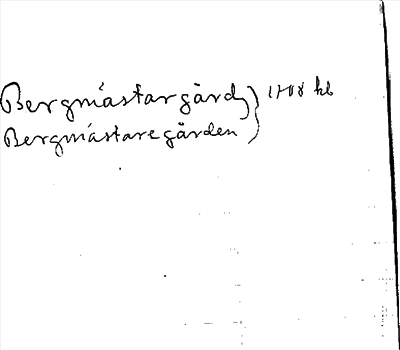 Bergmästargård } 1708 kb
Bergmästaregården